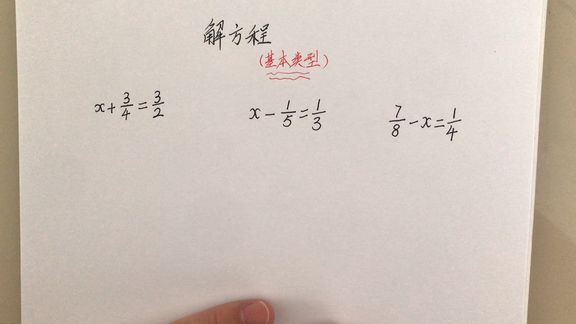 解方程
(基本类型)
x+3/4=3/2 x-1/5=1/3 7/8-x=1/4